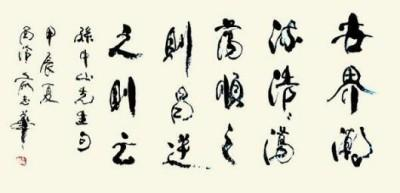 世界潮
流浩浩蕩
蕩順之
則昌逆
之則亡
孫中山先生句
甲辰夏